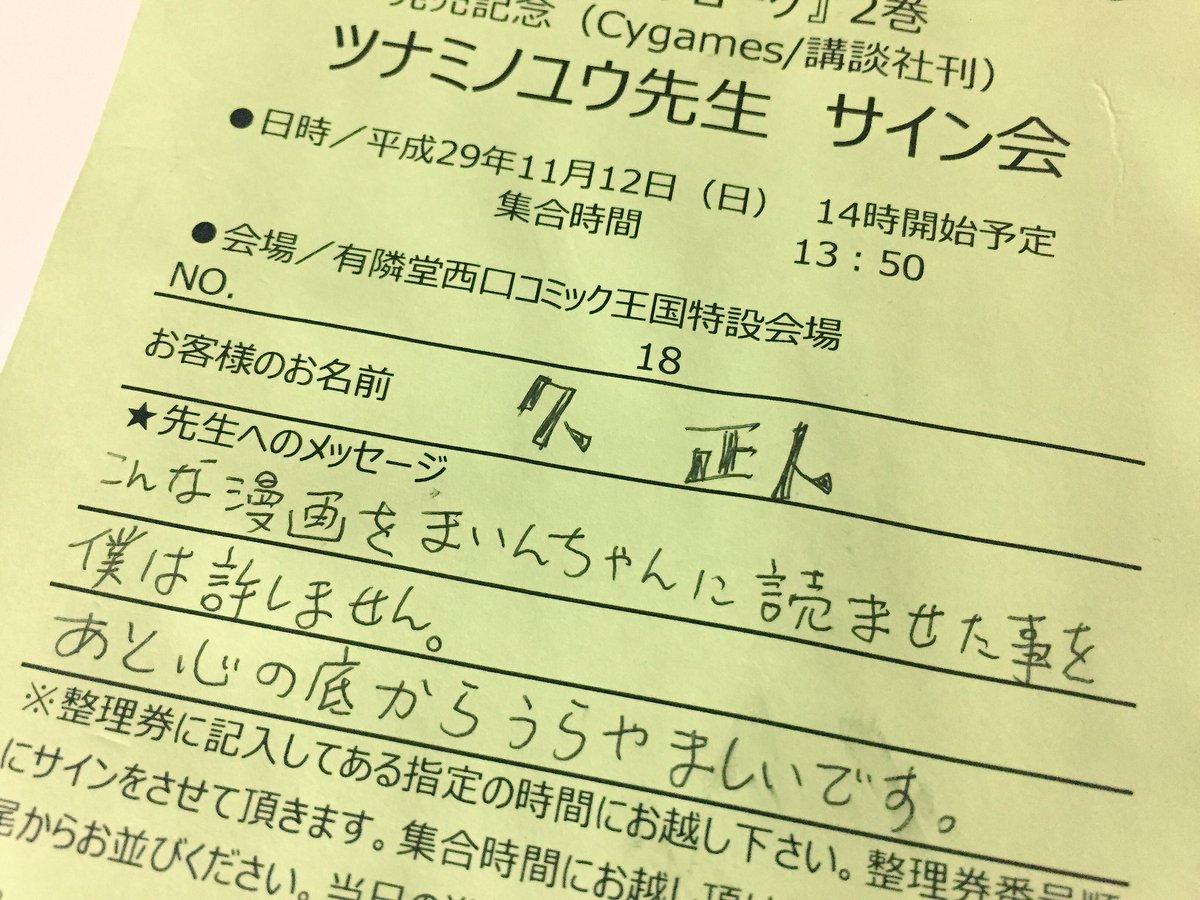 』2巻
発売記念（Cygames/講談社刊）
ツナミノユウ先生 サイン会
●日時／平成29年11月12日（日） 14時開始予定
集合時間 13：50
●会場／有隣堂西口コミック王国特設会場
NO. 18
お客様のお名前 久 正人
★先生へのメッセージ
こんな漫画をまいんちゃんに読ませた事を
僕は許しません。
あと心の底からうらやましいです。
※整理券に記入してある指定の時間にお越し下さい。整理券番号順
にサインをさせて頂きます。集合時間にお越し頂け
尾からお並びください。当日の